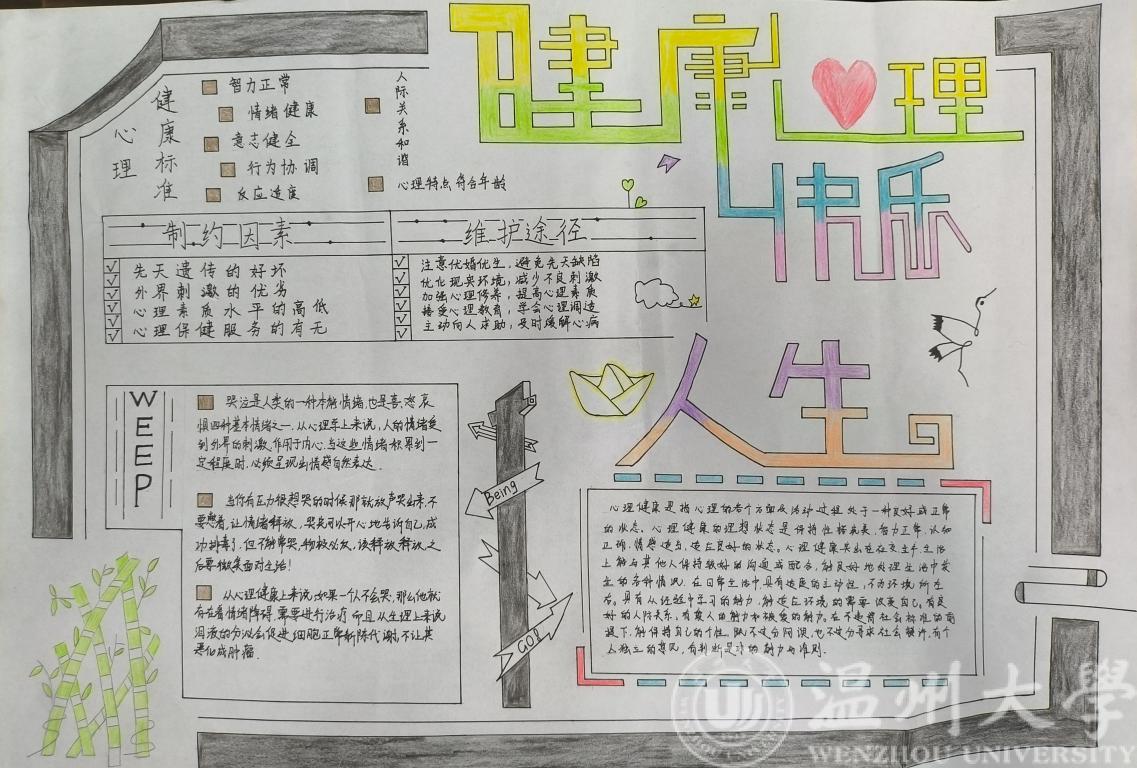 健康心理
快乐
人生
心理
健康标准
智力正常
情绪健康
意志健全
行为协调
反应适度
人际关系和谐
心理特点符合年龄
制约因素
先天遗传的好坏
外界刺激的优劣
心理素质水平的高低
心理保健服务的有无
维护途径
注意优婚优生,避免先天缺陷
优化现实环境,减少不良刺激
加强心理修养,提高心理素质
接受心理教育,学会心理调适
主动向人求助,及时缓解心病
WEEP
哭泣是人类的一种本能情绪,也是喜、怒、哀
惧四种基本情绪之一.从心理学上来说,人的情绪受
到外界的刺激,作用于内心.当这些情绪积累到一
定程度时,必须呈现出情感自然表达.
当你有压力很想哭的时候那就放声哭出来,不
要憋着,让情绪释放,哭完可以开心地告诉自己,成
功排毒了.但不能常哭,物极必反,该释放释放,之
后要微笑面对生活!
从心理健康上来说,如果一个人不会哭,那么他就
存在着情绪障碍,需要进行治疗.而且从生理上来说
泪液的分泌会促进细胞正常新陈代谢,不让其
恶化成肿瘤.
Being
GO!
心理健康是指心理的各个方面及活动过程处于一种良好或正常
的状态。心理健康的理想状态是保持性格完美、智力正常、认知
正确、情感适当、适应良好的状态。心理健康突出在在交往、生活
上能与其他人保持较好的沟通或配合,能良好地处理生活中发
生的各种情况。在日常生活中,具有适度的主动性,不为环境所左
右。具有从经验中学习的能力,能适应环境的需要改变自己。有良
好的人际关系,有爱人的能力和被爱的能力。在不违背社会标准的前
提下,能保持自己的个性,既不过分阿谀,也不过分寻求社会赞许,有个
人独立的意见,有判断是非的能力与准则.
温州大学
WENZHOU UNIVERSITY